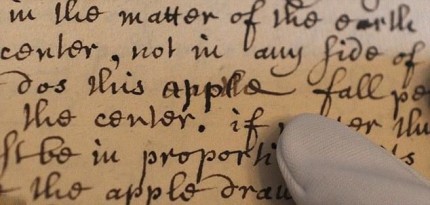 in the matter of the earth
center, not in any side of
dos this apple fall pe
the center. if er thu
st be in proporti its
the apple draw